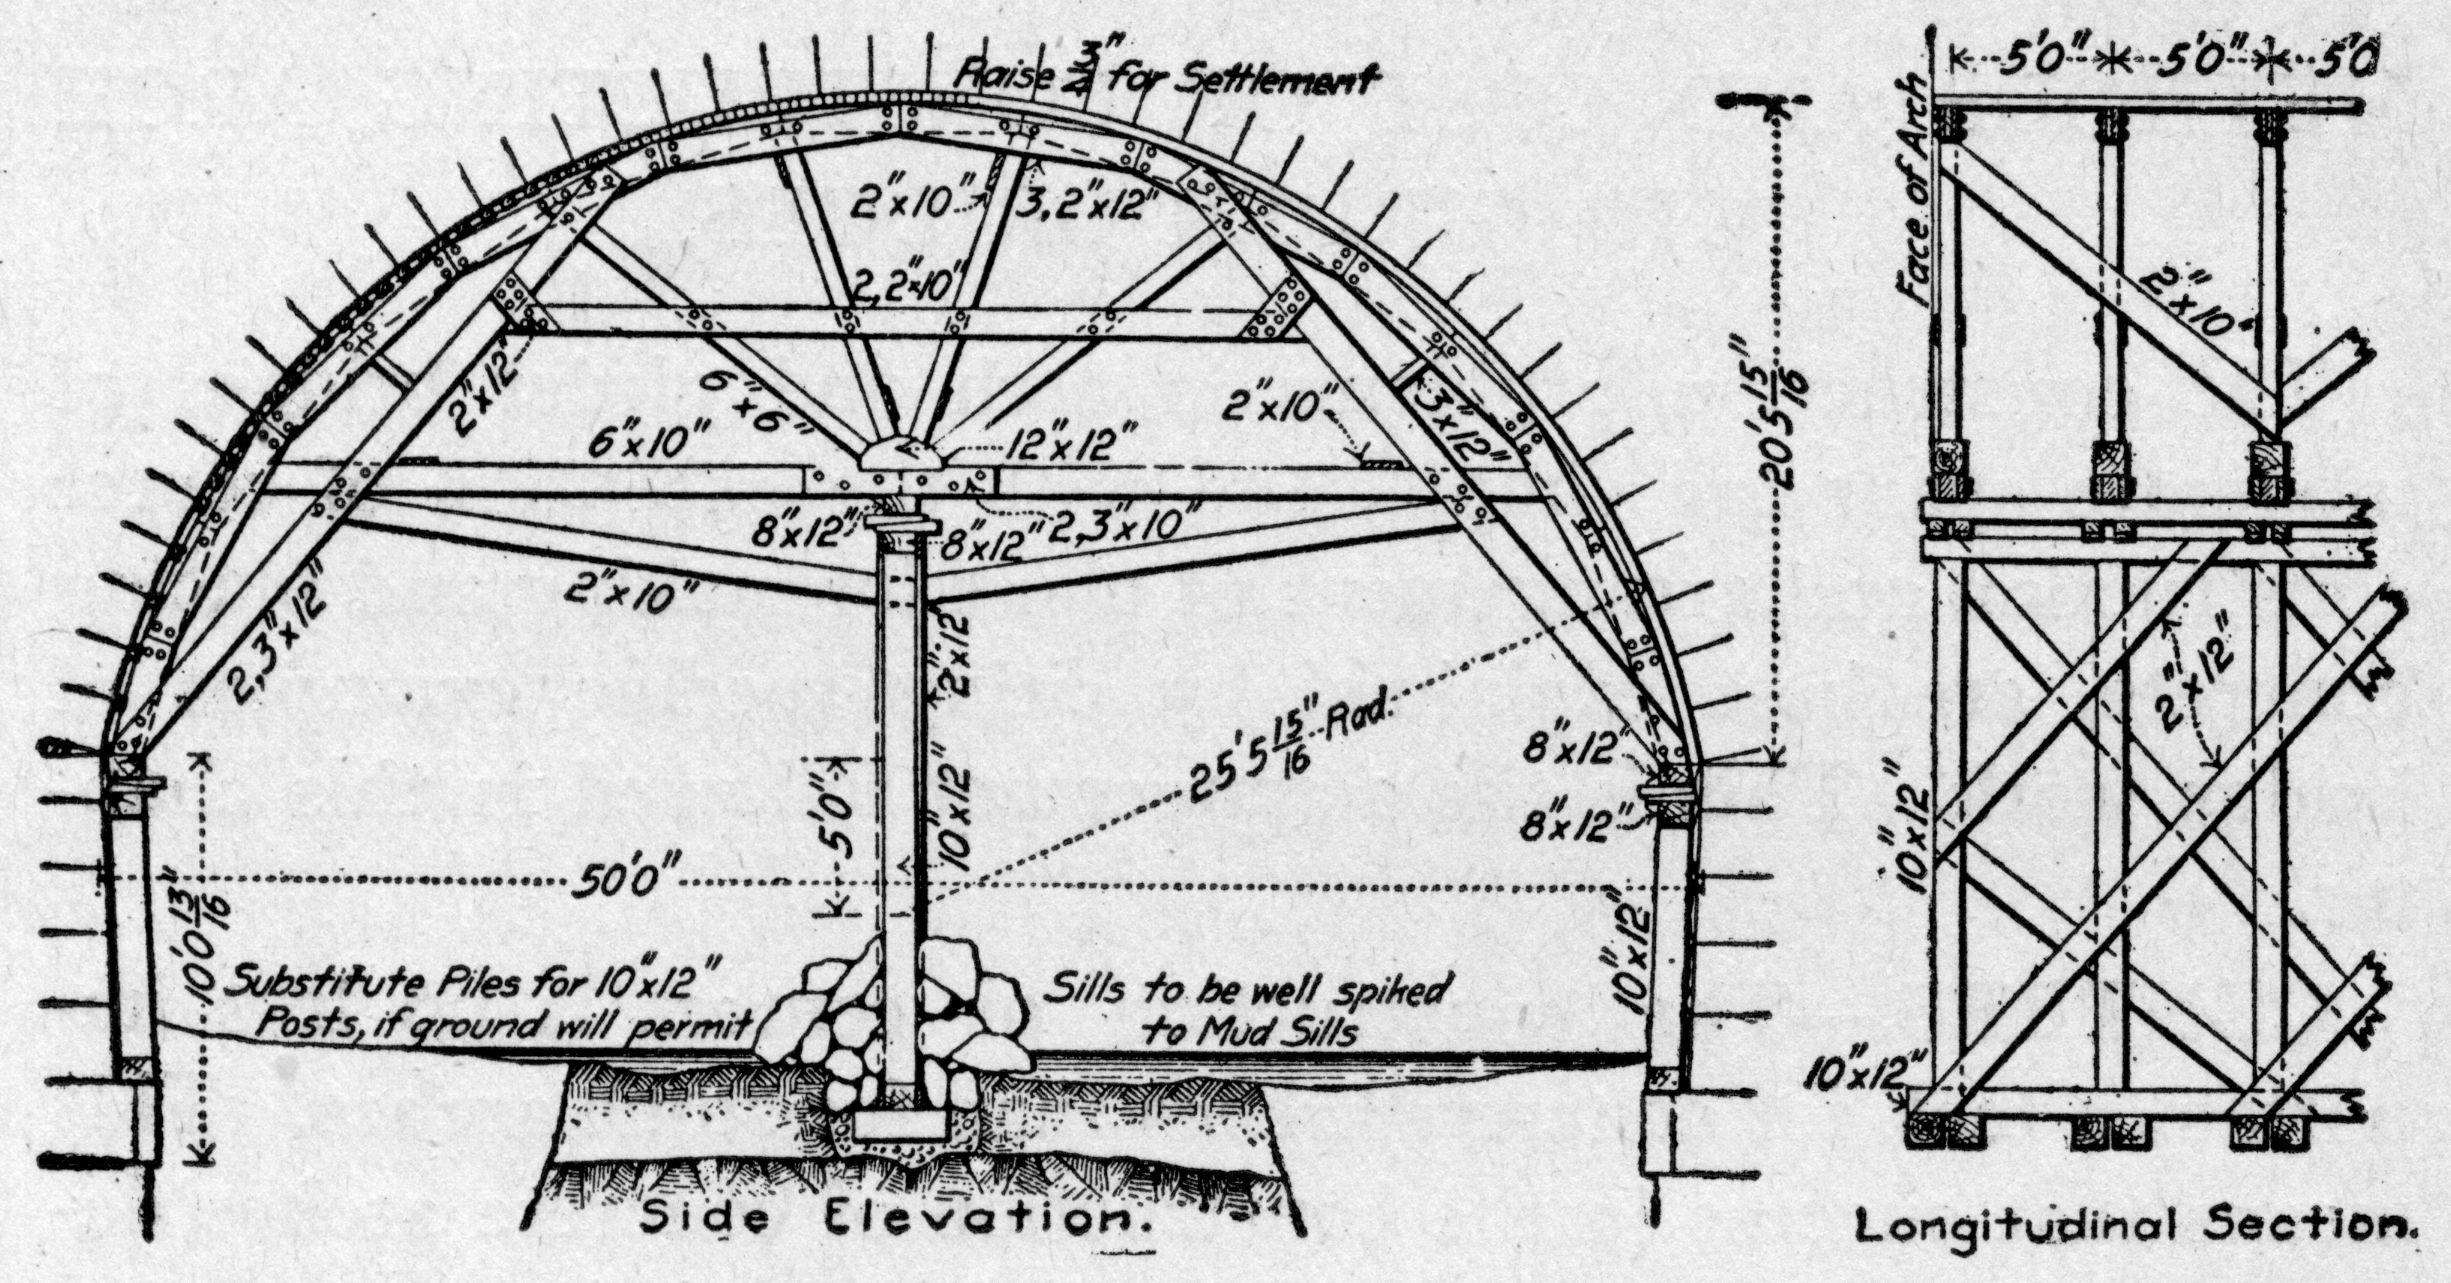 Raise 3/4" for Settlement
2"x10"
3,2"x12"
2,2"x10"
2"x12"
6"x6"
6"x10"
12"x12"
2"x10"
3"x12"
8"x12"
8"x12"
2,3"x10"
2"x10"
2,3"x12"
2"x12"
10"x12"
5'0"
25'5 15/16" Rad.
8"x12"
8"x12"
50'0"
10'0 13/16"
10"x12"
20'5 15/16"
Substitute Piles for 10"x12"
Posts, if ground will permit
Sills to be well spiked
to Mud Sills
Side Elevation.
5'0" 5'0" 5'0
Face of Arch
2"x10"
2"x12"
10"x12"
10"x12"
Longitudinal Section.